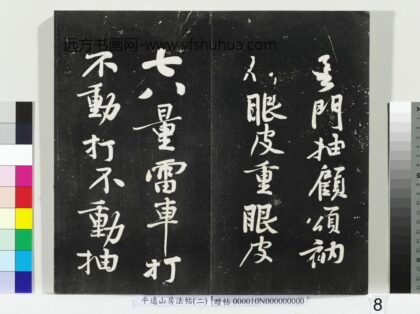 远方书画网-www.yfshuhua.com
門抽顧頌衲
眼皮重眼皮
七八量雷車打
不動打不動抽
平遠山房法帖(二)
贈帖 000010N000000000
8